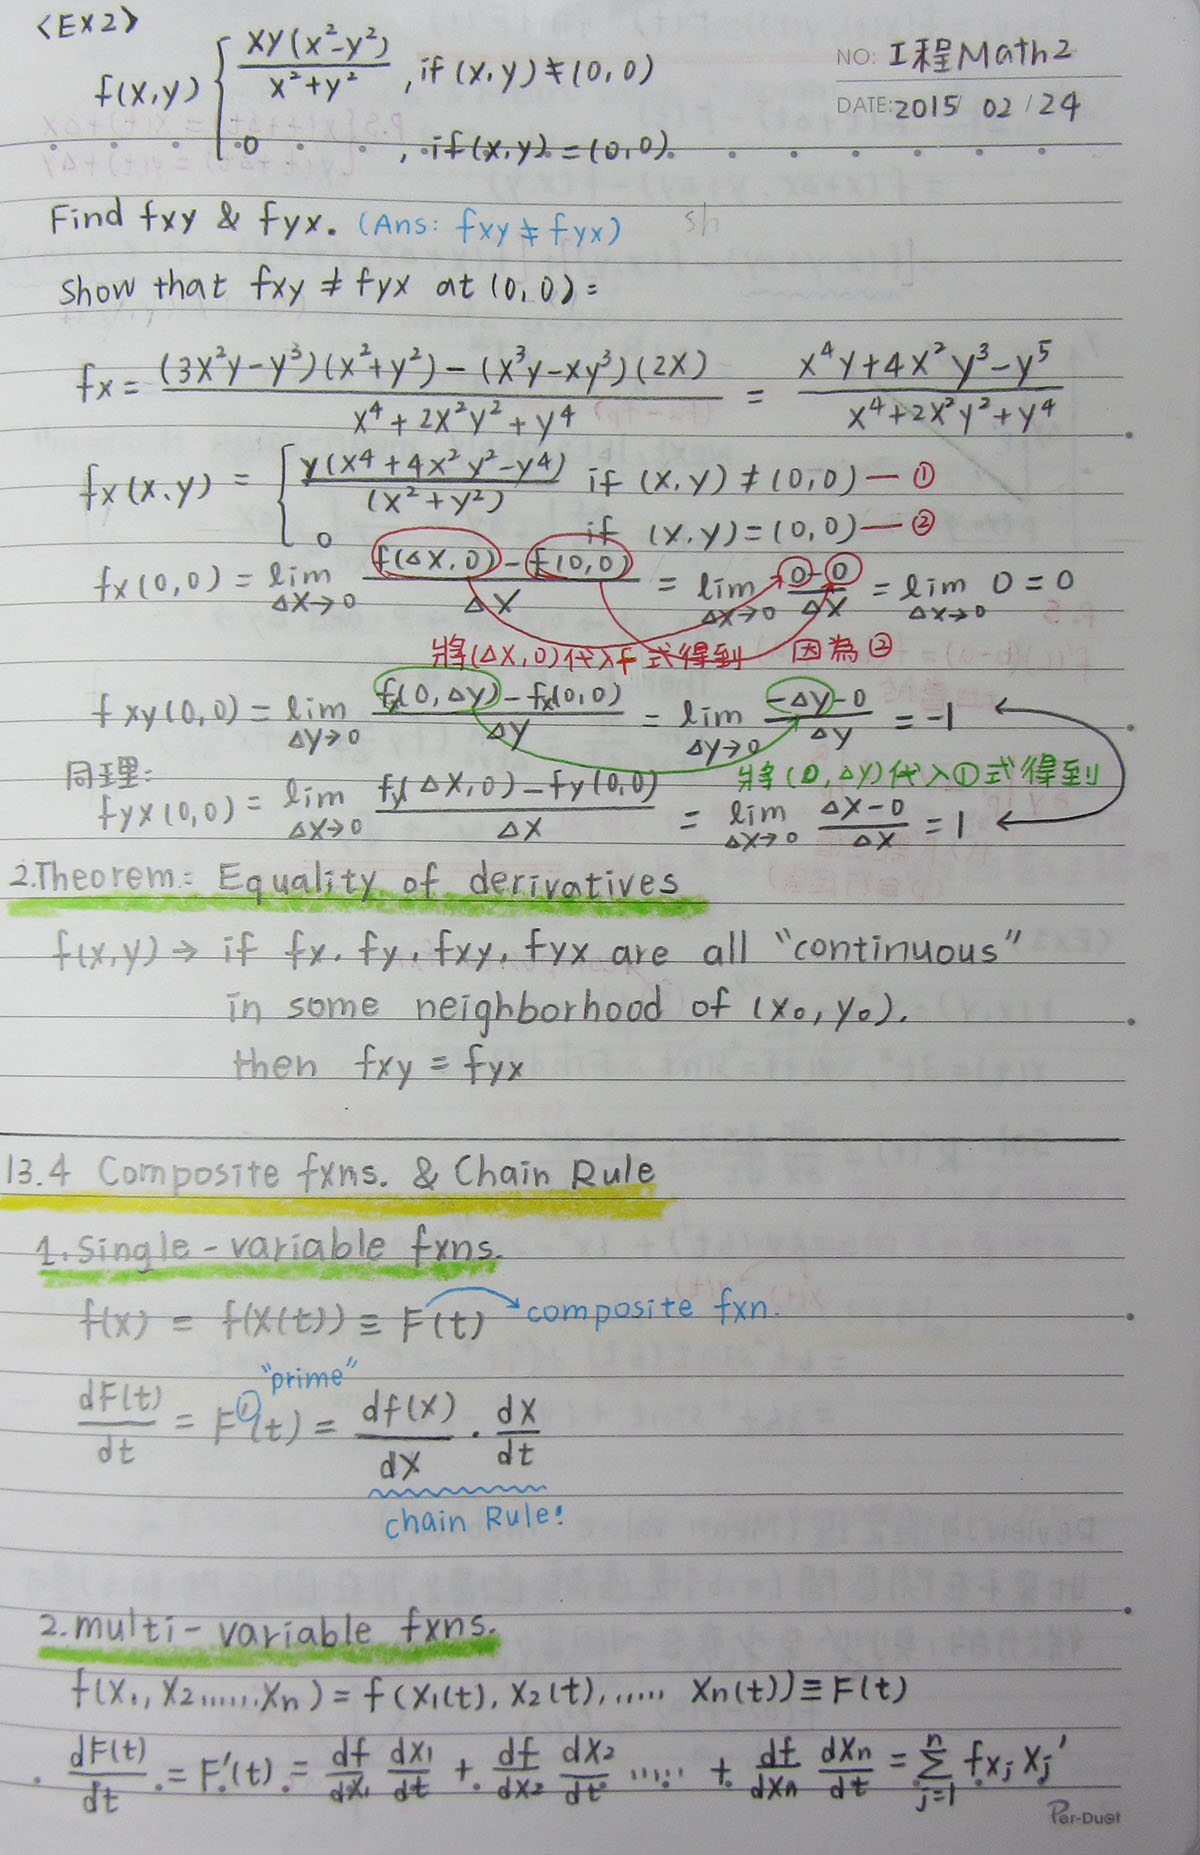 <EX2>
NO: 工程Math2
DATE: 2015/ 02 / 24
f(x,y) { xy(x²-y²) / x²+y² , if (x,y) ≠ (0,0)
0 , if (x,y) = (0,0)
Find fxy & fyx. (Ans: fxy ≠ fyx)
sh
Show that fxy ≠ fyx at (0,0):
fx = (3x²y-y³)(x²+y²)-(x³y-xy³)(2x) / x⁴+2x²y²+y⁴ = x⁴y+4x²y³-y⁵ / x⁴+2x²y²+y⁴
fx(x,y) = { y(x⁴+4x²y²-y⁴) / (x²+y²) if (x,y) ≠ (0,0) — ①
0 if (x,y) = (0,0) — ②
fx(0,0) = lim Δx→0 f(Δx,0)-f(0,0) / Δx = lim Δx→0 0-0 / Δx = lim Δx→0 0 = 0
將(Δx,0)代入f式得到 因為②
fxy(0,0) = lim Δy→0 fx(0,Δy)-fx(0,0) / Δy = lim Δy→0 -Δy-0 / Δy = -1
將(0,Δy)代入①式得到
同理:
fyx(0,0) = lim Δx→0 fy(Δx,0)-fy(0,0) / Δx = lim Δx→0 Δx-0 / Δx = 1
2.Theorem: Equality of derivatives
f(x,y) → if fx, fy, fxy, fyx are all "continuous"
in some neighborhood of (x₀,y₀).
then fxy = fyx
13.4 Composite fxns. & Chain Rule
1.Single-variable fxns.
f(x) = f(x(t)) ≡ F(t) composite fxn.
"prime"
dF(t)/dt = F'(t) = df(x)/dx · dx/dt
chain Rule!
2.multi-variable fxns.
f(x₁,x₂......,xn) = f(x₁(t),x₂(t),..... xn(t)) ≡ F(t)
dF(t)/dt = F'(t) = df/dx₁ dx₁/dt + df/dx₂ dx₂/dt ..... + df/dxn dxn/dt = Σ j=1 n fxj xj'
Per-Duet